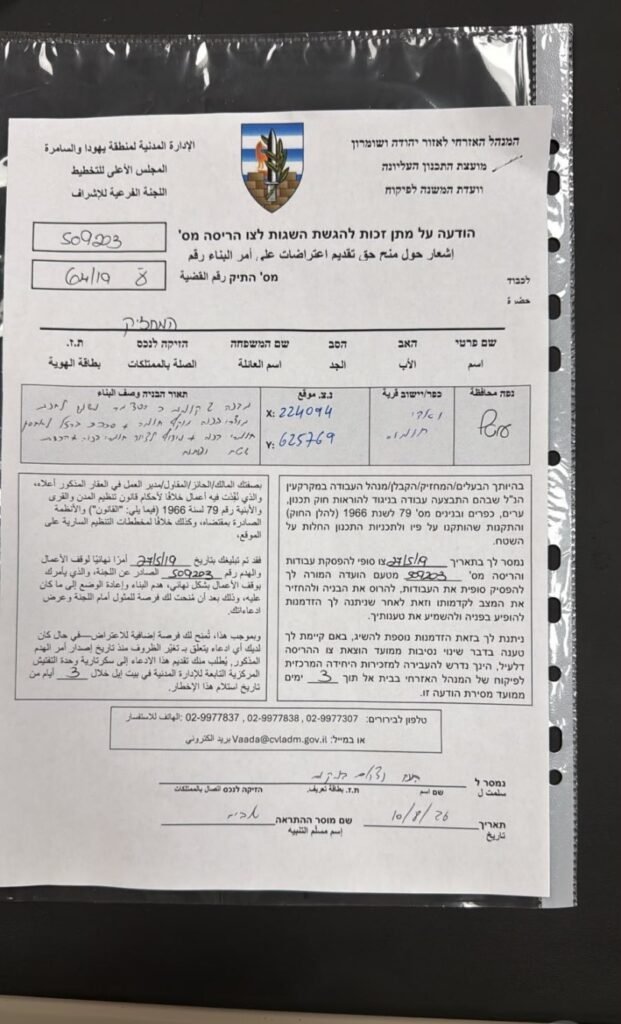 המנהל האזרחי לאזור יהודה ושומרון
מועצת התכנון העליונה
וועדת המשנה לפיקוח
الإدارة المدنية لمنطقة يهودا والسامرة
المجلس الأعلى للتخطيط
اللجنة الفرعية للإشراف
הודעה על מתן זכות להגשת השגות לצו הריסה מס'
509203
إشعار حول منح حق تقديم اعتراضات على أمر البناء رقم
מס' התיק رقم القضية
64/19
לכבוד
حضرة
המחזיק
שם פרטי האב הסב שם המשפחה הזיקה לנכס ת.ז.
اسم الأب الجد اسم العائلة الصلة بالممتلكات بطاقة الهوية
נפה محافظة כפר/יישוב قرية נ.צ. موقع תאור הבניה وصف البناء
ואדי
חומוס
X: 224094
Y: 625769
מבנה 2 קומות
בהיותך הבעלים/המחזיק/הקבלן/מנהל העבודה במקרקעין
הנ"ל שבהם התבצעה עבודה בניגוד להוראות חוק תכנון,
ערים, כפרים ובנינים מס' 79 לשנת 1966 (להלן החוק)
והתקנות שהותקנו על פיו ולתכניות התכנון החלות על
השטח.
נמסר לך בתאריך 27/5/19 צו סופי להפסקת עבודות
והריסה מס' 509203 מטעם הועדה המורה לך
להפסיק סופית את העבודות, להרוס את הבניה ולהחזיר
את המצב לקדמותו וזאת לאחר שניתנה לך הזדמנות
להופיע בפניה ולהשמיע את טענותיך.
ניתנת לך בזאת הזדמנות נוספת להשיג, באם קיימת לך
טענה בדבר שינוי נסיבות ממועד הוצאת צו ההריסה
דלעיל, הינך נדרש להעבירה למזכירות היחידה המרכזית
לפיקוח של המנהל האזרחי בבית אל תוך 3 ימים
ממועד מסירת הודעה זו.
بصفتك المالك/الحائز/المقاول/مدير العمل في العقار المذكور أعلاه،
والذي نُفِّذت فيه أعمال خلافًا لأحكام قانون تنظيم المدن والقرى
والأبنية رقم 79 لسنة 1966 (فيما يلي: "القانون") والأنظمة
الصادرة بمقتضاه، وكذلك خلافًا لمخططات التنظيم السارية على
الموقع،
فقد تم تبليغك بتاريخ 27/5/19 أمرًا نهائيًا لوقف الأعمال
والهدم رقم 509203 الصادر عن اللجنة، والذي يأمرك
بوقف الأعمال بشكل نهائي، هدم البناء وإعادة الوضع إلى ما كان
عليه، وذلك بعد أن مُنحت لك فرصة للمثول أمام اللجنة وعرض
ادعاءاتك.
وبموجب هذا، تُمنح لك فرصة إضافية للاعتراض—في حال كان
لديك أي ادعاء يتعلق بـ تغيّر الظروف منذ تاريخ إصدار أمر الهدم
المذكور. يُطلب منك تقديم هذا الادعاء إلى سكرتارية وحدة التفتيش
المركزية التابعة للإدارة المدنية في بيت إيل خلال 3 أيام من
تاريخ استلام هذا الإخطار.
טלפון לבירורים: 02-9977307, 02-9977838, 02-9977837 :الهاتف للاستفسار
או במייל: Vaada@cvladm.gov.il بريد الكتروني
נמסר ל
سلمت ل
שם اسم ת.ז. بطاقة تعريف. הזיקה לנכס اتصال بالممتلكات
תאריך 10/8/26 שם מוסר ההתראה
تاريخ إسم مسلّم التنبيه